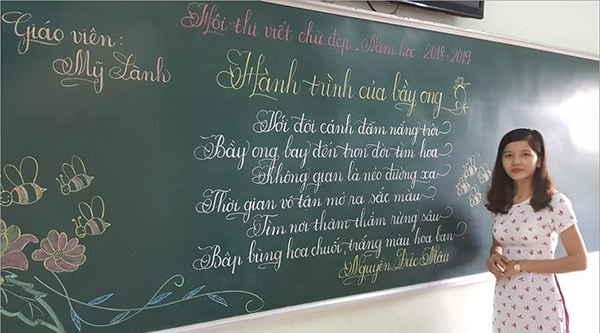 Giáo viên:
Mỹ Lành
Hội thi viết chữ đẹp - Năm học 2018-2019
Hành trình của bầy ong
Với đôi cánh đẫm nắng trời
Bầy ong bay đến trọn đời tìm hoa
Không gian là nẻo đường xa
Thời gian vô tận mở ra sắc màu.
Tìm nơi thăm thẳm rừng sâu
Bập bùng hoa chuối, trắng màu hoa ban
Nguyễn Đức Mậu